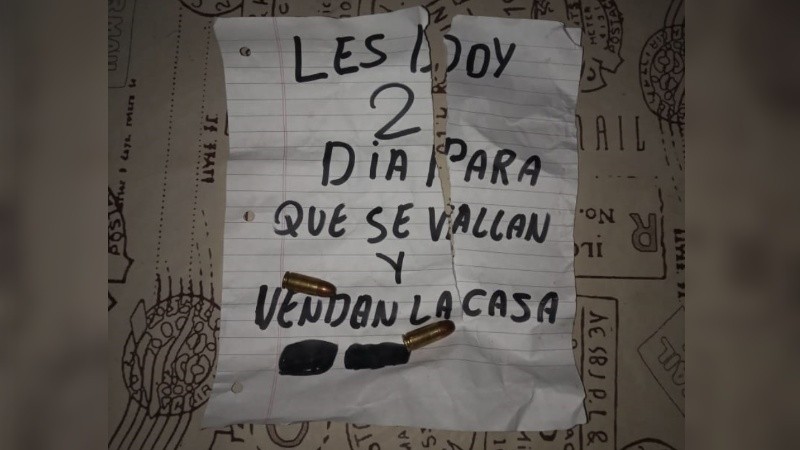 LES DOY
2
DIA PARA
QUE SE VALLAN
Y
VENDAN LA CASA
MAIL